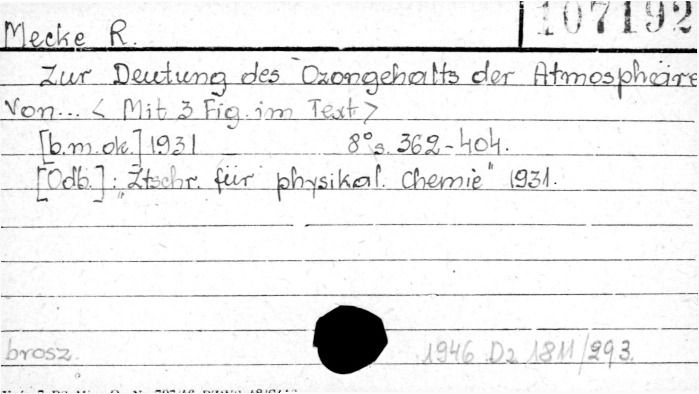 107192
Mecke R.
Zur Deutung des Ozongehalts der Atmosphäre
Von... < Mit 3 Fig. im Text >
[b.m.ok.] 1931 8° s. 362-404.
[Odb.]: „Ztschr. für physikal. Chemie" 1931.
brosz. 1946 Dz 1811/293.